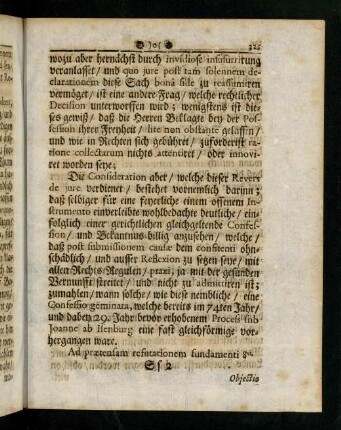 )o( 325
wozu aber hernächst durch invidiose insinuirung
veranlasset / und quo jure post tam solennem de-
clarationem diese Sach bonâ fide zu reassumiren
vermöget / ist eine andere Frag / welche rechtlicher
Decision unterworffen wird; wenigstens ist die-
ses gewiß / daß die Herren Beklagte bey der Pos-
session ihrer Freyheit / lite non obstante gelassen /
und wie in Rechten sich gebühret / zuforderist ra-
tione collectarum nichts attentiret / oder innovi-
ret worden seye;
Die Consideration aber / welche dieser Revers
de jure verdienet / bestehet vornemlich darinn;
daß selbiger für eine feyerliche einem offenem In-
strumento einverleibte wohlbedachte deutliche / ein-
folglich einer gerichtlichen gleichgeltende Confes-
sion / und Bekanntnus billig anzusehen / welche /
daß post submissionem causæ dem confitenti ohn-
schädlich / und ausser Reflexion zu setzen seye / mit
allen Rechts-Regulen / praxi, ja mit der gesunden
Vernunfft streitet / und nicht zu admittiren ist;
zumahlen / wann solche / wie diese nembliche / eine
Confessio geminata, welche bereits im 74ten Jahr /
und dabey 29. Jahr bevor erhobenem Process sub
Joanne ab Isenburg eine fast gleichförmige vor-
hergangen ware.
Ad prætensam refutationem fundamenti 9n.
Ss 2
Objectio